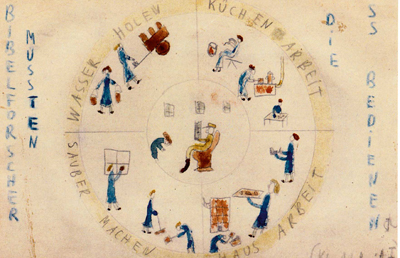 BIBELFORSCHER
MUSSTEN
WASSER HOLEN
KÜCHEN ARBEIT
SAUBER MACHEN
HAUS ARBEIT
DIE
SS BEDIENEN